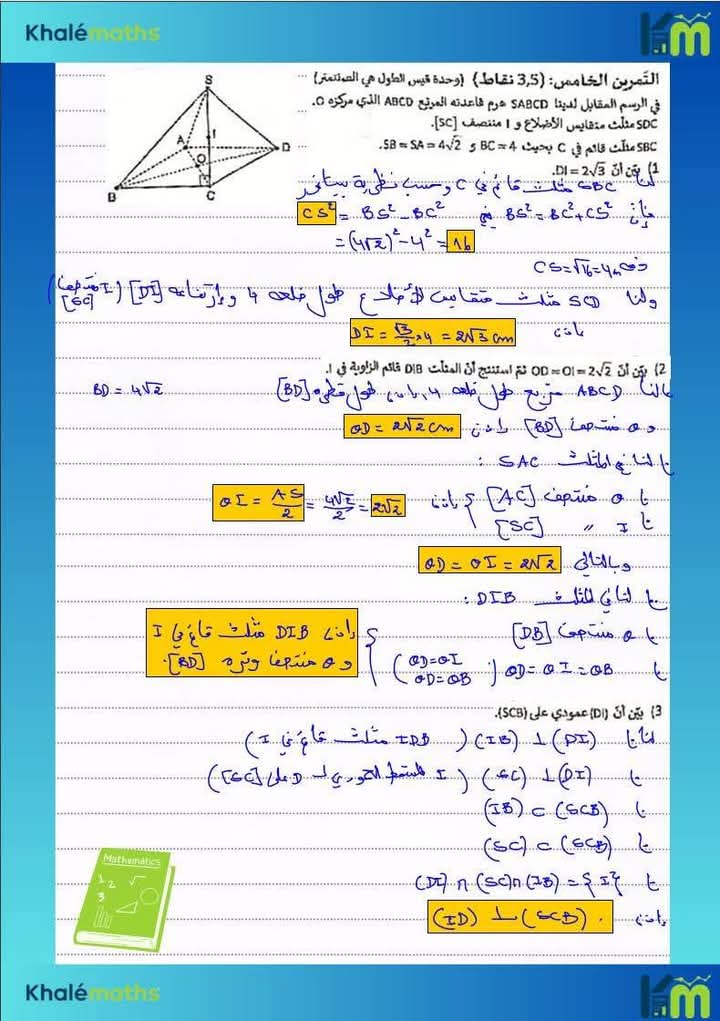 Khalémaths
Km
التمرين الخامس: (3,5 نقاط) (وحدة قيس الطول هي الصنتمتر)
في الرسم المقابل لدينا SABCD هرم قاعدته المربع ABCD الذي مركزه O.
SDC مثلث متقايس الأضلاع و I منتصف [SC].
SBC مثلث قائم في C بحيث BC = 4 و SB = SA = 4√2.
S
A
I
D
O
B
C
1) بيّن أنّ DI = 2√3.
لنا SBC مثلث قائم في C وحسب نظرية بيتاغور
فإن BS² = BC² + CS² يعني CS² = BS² - BC²
= (4√2)² - 4² = 16
CS = √16 = 4
ولنا SCD مثلث متقايس الأضلاع طول ضلعه 4 وارتفاعه [DI] (I منتصف [SC])
إذن DI = √3/2 × 4 = 2√3 cm
2) بيّن أنّ OD = OI = 2√2 ثمّ استنتج أنّ المثلّث DIB قائم الزاوية في I.
ABCD مربع طول ضلعه 4 إذن طول قطره [BD] BD = 4√2
و O منتصف [BD] إذن OD = 2√2 cm
المثلث SAC :
O منتصف [AC] إذن OI = AS/2 = 4√2/2 = 2√2
I " [SC]
وبالتالي OD = OI = 2√2
المثلث DIB :
O منتصف [DB]
OD = OI = OB (OD = OI OD = OB) إذن DIB مثلث قائم في I
و O منتصف وتره [BD].
3) بيّن أنّ (DI) عمودي على (SCB).
لنا (DI) ⊥ (IB) (IDB مثلث قائم في I)
(DI) ⊥ (SC) (I المسقط العمودي لـ D على [SC])
(IB) ⊂ (SCB)
(SC) ⊂ (SCB)
(DI) ∩ (SC) ∩ (IB) = {I}
إذن (ID) ⊥ (SCB).
Mathematics
1 2 √
3
Khalémaths
Km